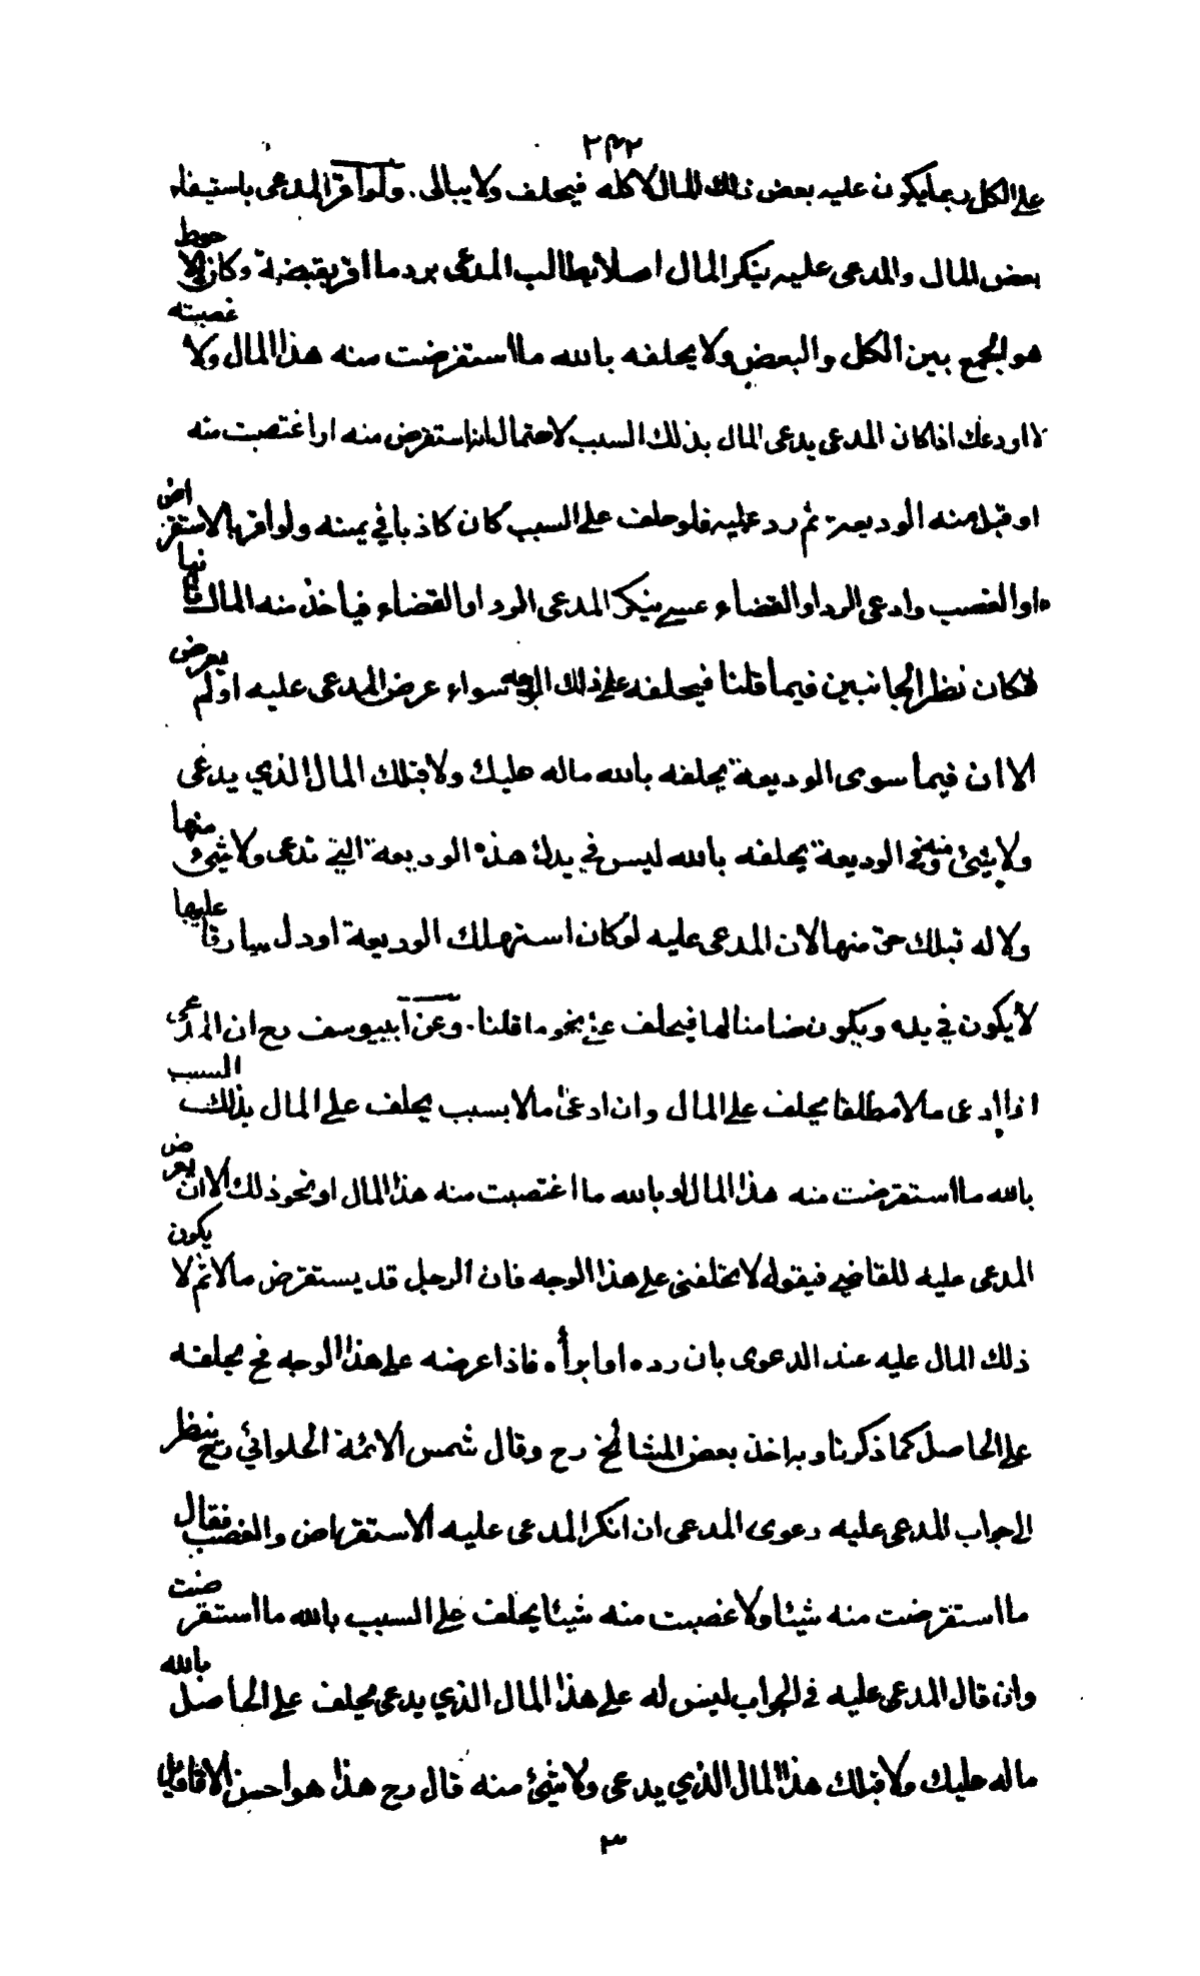 ٢٣٢
على الكل ربما يكون عليه بعض ذلك المال لا كله فيحلف ولا يبالى. ولو اقر المدعى باستيفاء
بعض المال والمدعى عليه ينكر المال اصلا يطالب المدعى برد ما اقر بقبضه وكان الاحوط
هو الجمع بين الكل والبعض ولا يحلفه بالله ما استقرضت منه هذا المال ولا غصبته
لا اودعك اذا كان المدعى يدعى المال بذلك السبب لاحتمال انه استقرض منه او اغتصبت منه
او قبل منه الوديعة ثم رد عليه فلو حلف على السبب كان كاذبا في يمينه ولو اقر بالاستقراض
او الغصب وادعى الرد او القضاء عسى ينكر المدعى الرد او القضاء فياخذ منه المال ثانيا
فكان نظر الجانبين فيما قلنا فيحلفه على ذلك الوجه سواء عرض المدعى عليه او لم يعرض
الا ان فيما سوى الوديعة يحلفه بالله ماله عليك ولا قبلك المال الذي يدعى
ولا شئ منه وفي الوديعة يحلفه بالله ليس في يدك هذه الوديعة التي تدعى ولا شئ منها
ولا له قبلك حق منها لان المدعى عليه لو كان استهلك الوديعة او دل سارقا عليها
لا يكون في يده ويكون ضامنا لها فيحلف على نحو ما قلنا. وعن ابييوسف رح ان المدعى
اذا ادعى مالا مطلقا يحلف على المال وان ادعى مالا بسبب يحلف على المال بذلك السبب
بالله ما استقرضت منه هذا المال او بالله ما اغتصبت منه هذا المال او نحو ذلك الا ان يعرض
المدعى عليه للقاضي فيقول لا تحلفنى على هذا الوجه فان الرجل قد يستقرض مالا ثم لا يكون
ذلك المال عليه عند الدعوى بان رده او ابرأه فاذا عرضه على هذا الوجه فح يحلفه
على الحاصل كما ذكرنا وبه اخذ بعض المشائخ رح وقال شمس الائمة الحلوائي رح ينظر
الى جواب المدعى عليه دعوى المدعى ان انكر المدعى عليه الاستقراض والغصب فقال
ما استقرضت منه شيئا ولا غصبت منه شيئا يحلف على السبب بالله ما استقرضت
وان قال المدعى عليه في الجواب ليس له على هذا المال الذي يدعى يحلف على الحاصل بالله
ماله عليك ولا قبلك هذا المال الذي يدعى ولا شئ منه قال رح هذا هو احسن الاقاويل